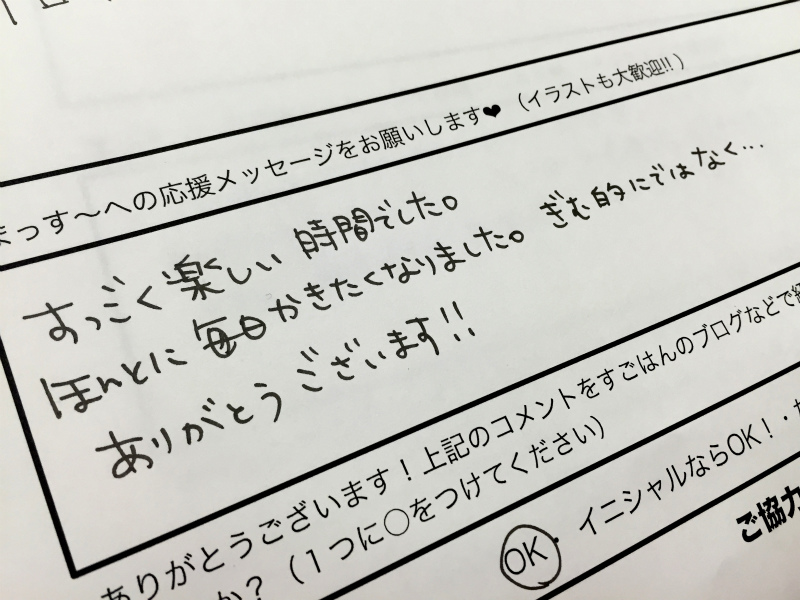 まっす～への応援メッセージをお願いします❤（イラストも大歓迎!!）
すっごく楽しい時間でした。
ほんとに毎日かきたくなりました。ぎむ的にではなく…
ありがとうございます!!
ありがとうございます！上記のコメントをすごはんのブログなどで
か？（１つに○をつけてください）
OK・イニシャルならOK！・
ご協力